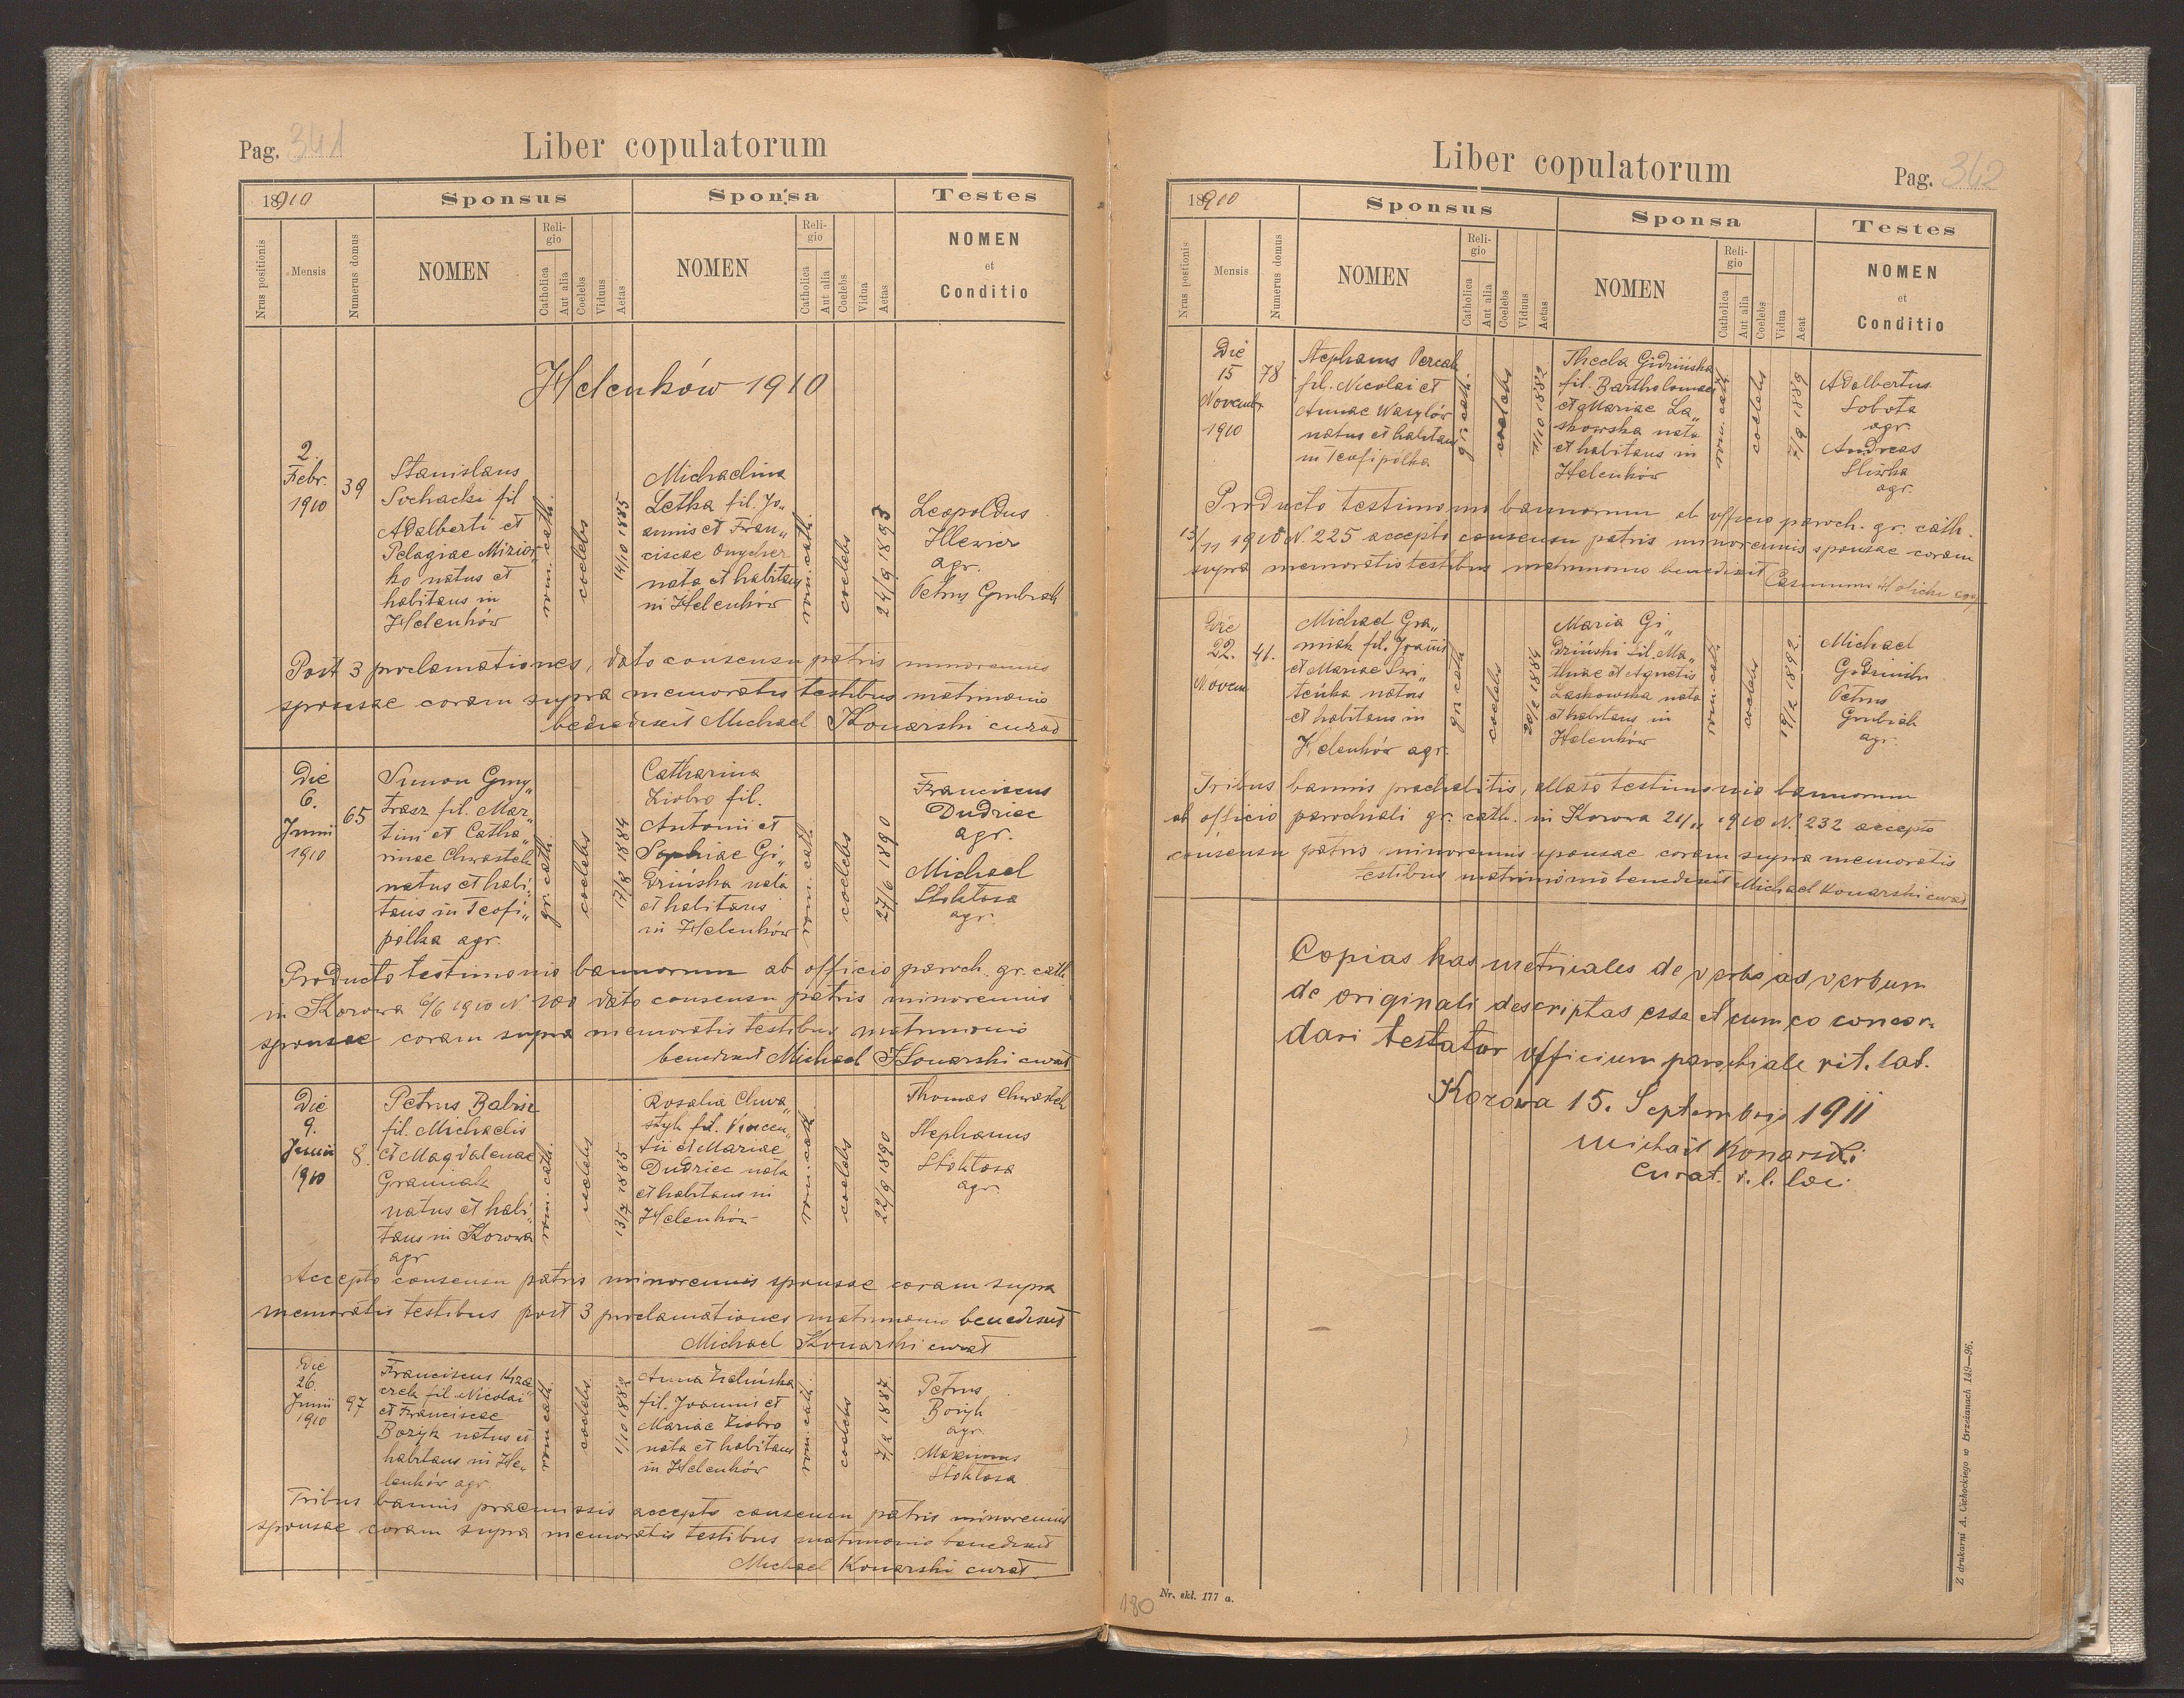 Pag. 341
Liber copulatorum
18910
Sponsus
Sponsa
Testes
Nrus positionis
Mensis
Numerus domus
NOMEN
Religio
Catholica
Aut alia
Coelebs
Viduus
Aetas
NOMEN
Religio
Catholica
Aut alia
Coelebs
Vidua
Aetas
NOMEN
et
Conditio
Helenków 1910
2.
Febr.
1910
39
Stanislaus
Sochacki fil
Adalberti et
Pelagiae Mizior„
ko natus et
habitans in
Helenków
rom. cath.
coelebs
14/10 1885
Michaelina
Letka fil. Jo„
annis et Fran„
ciscae Onyszker
nata et habitans
in Helenków
rom. cath.
coelebs
24/9 1893
Leopoldus
Illewicz
agr.
Petrus Grubiak
Post 3 proclamationes, dato consensu patris minorennis
sponsae coram supra memoratis testibus matrimonio
benedixit Michael Konarski curat
Die
6.
Junii
1910
65
Simon Gmy„
trasz fil. Mar„
tini et Catha„
rinae Chwastek
natus et habi„
tans in Teofi„
pólka agr.
gr. cath.
coelebs
17/8 1884
Catharina
Ziobro fil.
Antonii et
Sophiae Gi„
dzińska nata
et habitans
in Helenków
rom. cath.
coelebs
27/6 1890
Franciscus
Dudziec
agr.
Michael
Stokłosa
agr.
Producto testimonio bannorum ab officio paroch. gr. cath
in Kozowa 6/6 1910 N. 100 dato consensu patris minorennis
sponsae coram supra memoratis testibus matrimonio
benedixit Michael Konarski curat
Die
9.
Junii
1910
8.
Petrus Babisz
fil. Michaelis
et Magdalenae
Graniak
natus et habi„
tans in Kozowa
agr
rom. cath.
coelebs
13/7 1885
Rosalia Chwa„
styk fil. Vincen„
tii et Mariae
Dudziec nata
et habitans in
Helenków
rom. cath.
coelebs
22/9 1890
Thomas Chwastek
Stephanus
Stokłosa
agr.
Accepto consensu patris minorennis sponsae coram supra
memoratis testibus post 3 proclamationes matrimonio benedixit
Michael Konarski curat
Die
26.
Junii
1910
97
Franciscus Krza„
czek fil. Nicolai
et Franciscae
Bozyk natus et
habitans in He„
lenków agr.
rom. cath.
coelebs
1/10 1882
Anna Zielińska
fil. Joannis et
Mariae Ziobro
nata et habitans
in Helenków
rom. cath.
coelebs
7/2 1887
Petrus
Bozyk
agr.
Maximus
Stokłosa
Tribus bannis praemissis accepto consensu patris minorennis
sponsae coram supra memoratis testibus matrimonio benedixit
Michael Konarski curat.
Liber copulatorum
Pag. 342
18910
Sponsus
Sponsa
Testes
Nrus postionis
Mensis
Numerus domus
NOMEN
Religio
Catholica
Aut alia
Coelebs
Viduus
Aetas
NOMEN
Religio
Catholica
Aut alia
Coelebs
Vidua
Aeat
NOMEN
et
Conditio
Die
15
Novembr
1910
78
Stephanus Percak
fil. Nicolai et
Annae Wasylów
natus et habitans
in Teofipólka
gr. cath.
coelebs
1/10 1882
Thecla Gidzińska
fil. Bartholomaei
et Mariae La„
skowska nata
et habitans in
Helenków
rom. cath.
coelebs
Adalbertus
Sobota
agr.
Andreas
Śliwka
agr.
Producto testimonio bannorum ab officio paroch. gr. cath.
13/11 1910 N. 225 accepto consensu patris minorennis sponsae coram
supra memoratis testibus matrimonio benedixit
Die
22.
Novem
41.
Michael Gra„
niak fil. Joannis
et Mariae Swi„
teńka natus
et habitans in
Helenków agr.
gr. cath
coelebs
20/2 1884
Maria Gi„
dzińska fil. Ma„
thiae et Agnetis
Laskowska nata
et habitans in
Helenków
rom. cath.
coelebs
19/2 1892
Michael
Gidziński
Petrus
Grubiak
agr.
Tribus bannis praehabitis, allato testimonio bannorum
ab officio parochiali gr. cath. in Kozowa 21/11 1910 N. 232 accepto
consensu patris minorennis sponsae coram supra memoratis
testibus matrimonio benedixit Michael Konarski curat
Copias has metricales de verbo ad verbum
de originali descriptas esse et cum eo concor„
dari testatur officium parochiale rit. lat.
Kozowa 15. Septembris 1911
Michael Konarski
Curat. r. l. loci
Z drukarni A. Cichockiego w Brzeżanach 149—96.
Nr. skł. 177 a.
180